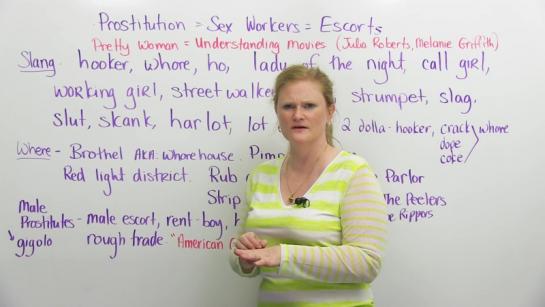 Prostitution = Sex Workers = Escorts
Pretty Woman = Understanding movies (Julia Roberts, Melanie Griffith)
Slang. hooker, whore, ho, lady of the night, call girl,
working girl, street walke strumpet, slag.
slut, skank, harlot, lot 2 dolla-hooker, crack whore
dope
coke
Where - Brothel AKA: Whorehouse. Pim
Red light district. Rub Parlor
Strip he Peelers
e Rippers
Male
Prostitutes - male escort, rent-boy, h
gigolo rough trade "American G